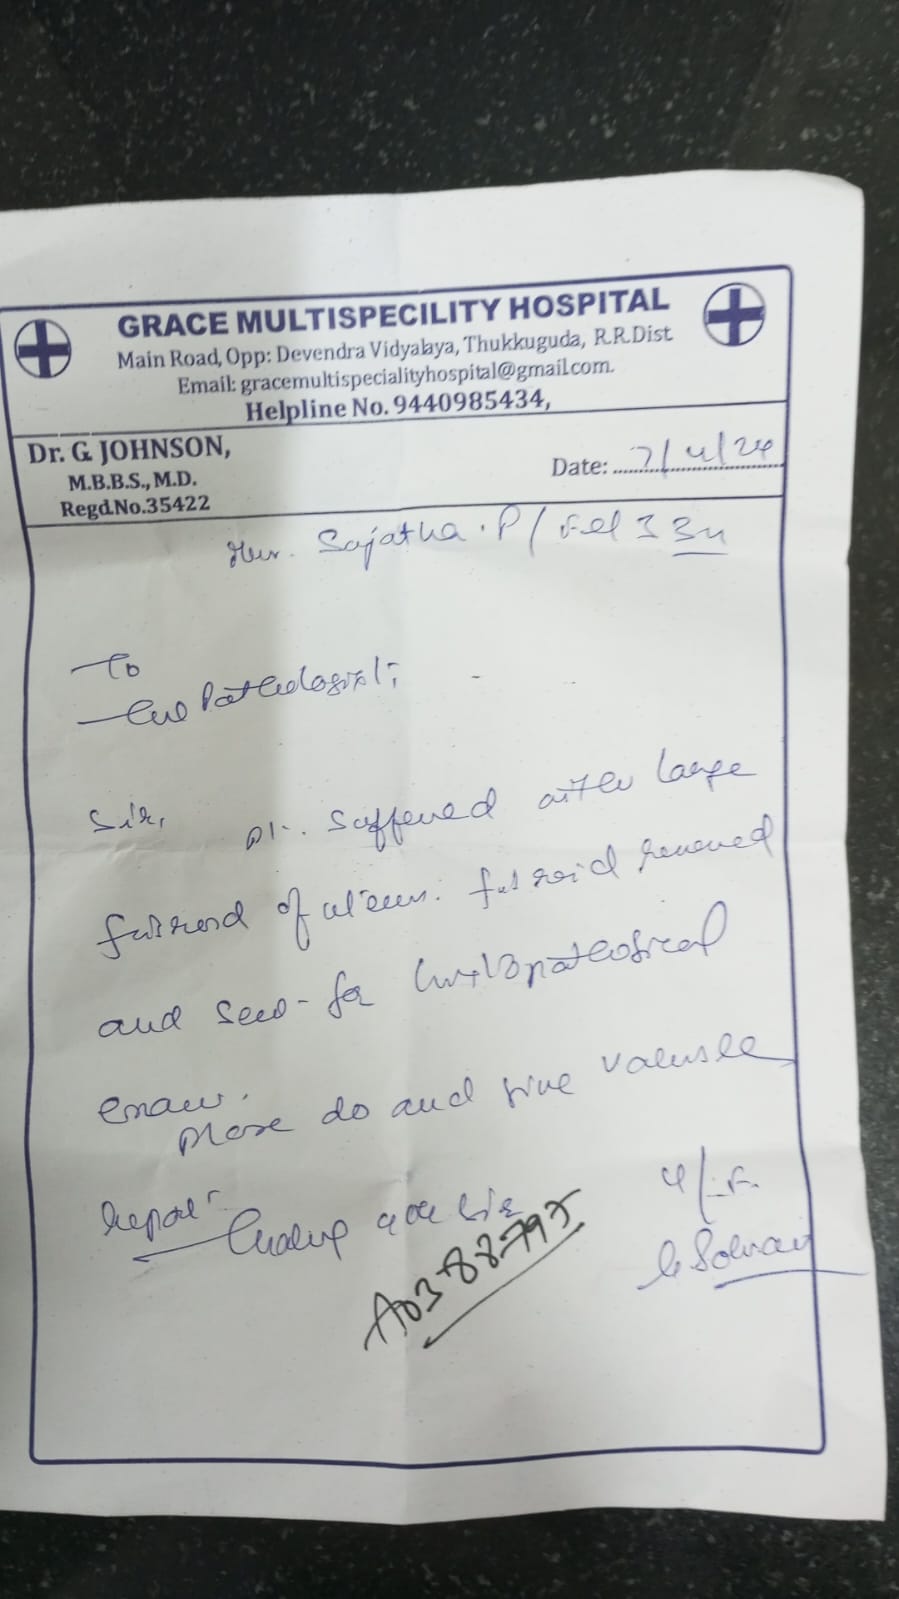 GRACE MULTISPECILITY HOSPITAL
Main Road, Opp: Devendra Vidyalaya, Thukkuguda, R.R.Dist.
Email: gracemultispecialityhospital@gmail.com.
Helpline No. 9440985434,
Dr. G. JOHNSON,
M.B.B.S., M.D.
Regd.No.35422
Date: 7/4/24
Sujatha . P /
To
The Pathologist,
Sir, pt. suffered with large
fibroid of uterus. fibroid removed
and send for histopathological
exam.
please do and give valuable
report
Thanking you sir
A0388795